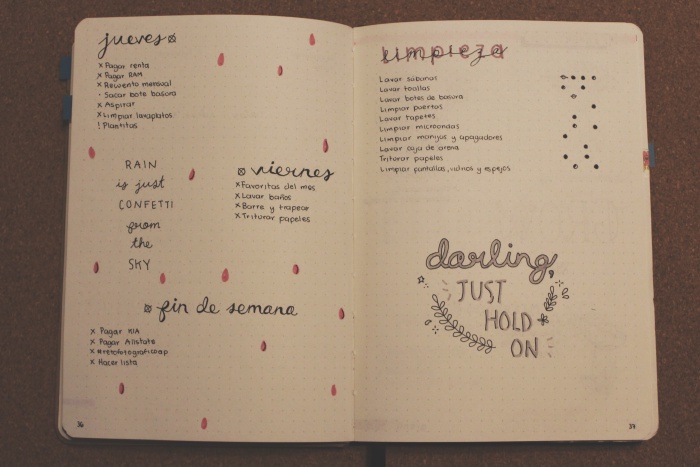 jueves
x Pagar renta
x Pagar RAM
x Recuento mensual
· Sacar bote basura
x Aspirar
x Limpiar lavaplatos
! Plantitas
RAIN
is just
CONFETTI
from
the
SKY
viernes
x Favoritos del mes
x Lavar baños
x Barre y trapear
x Triturar papeles
fin de semana
x Pagar KIA
x Pagar Allstate
x #retofotograficoap
x Hacer lista
36
Limpieza
Lavar sábanas
Lavar toallas
Lavar botes de basura
Limpiar puertas
Lavar tapetes
Limpiar microondas
Limpiar manijas y apagadores
Lavar caja de arena
Triturar papeles
Limpiar pantallas, vidrios y espejos
darling,
JUST
HOLD
ON
37